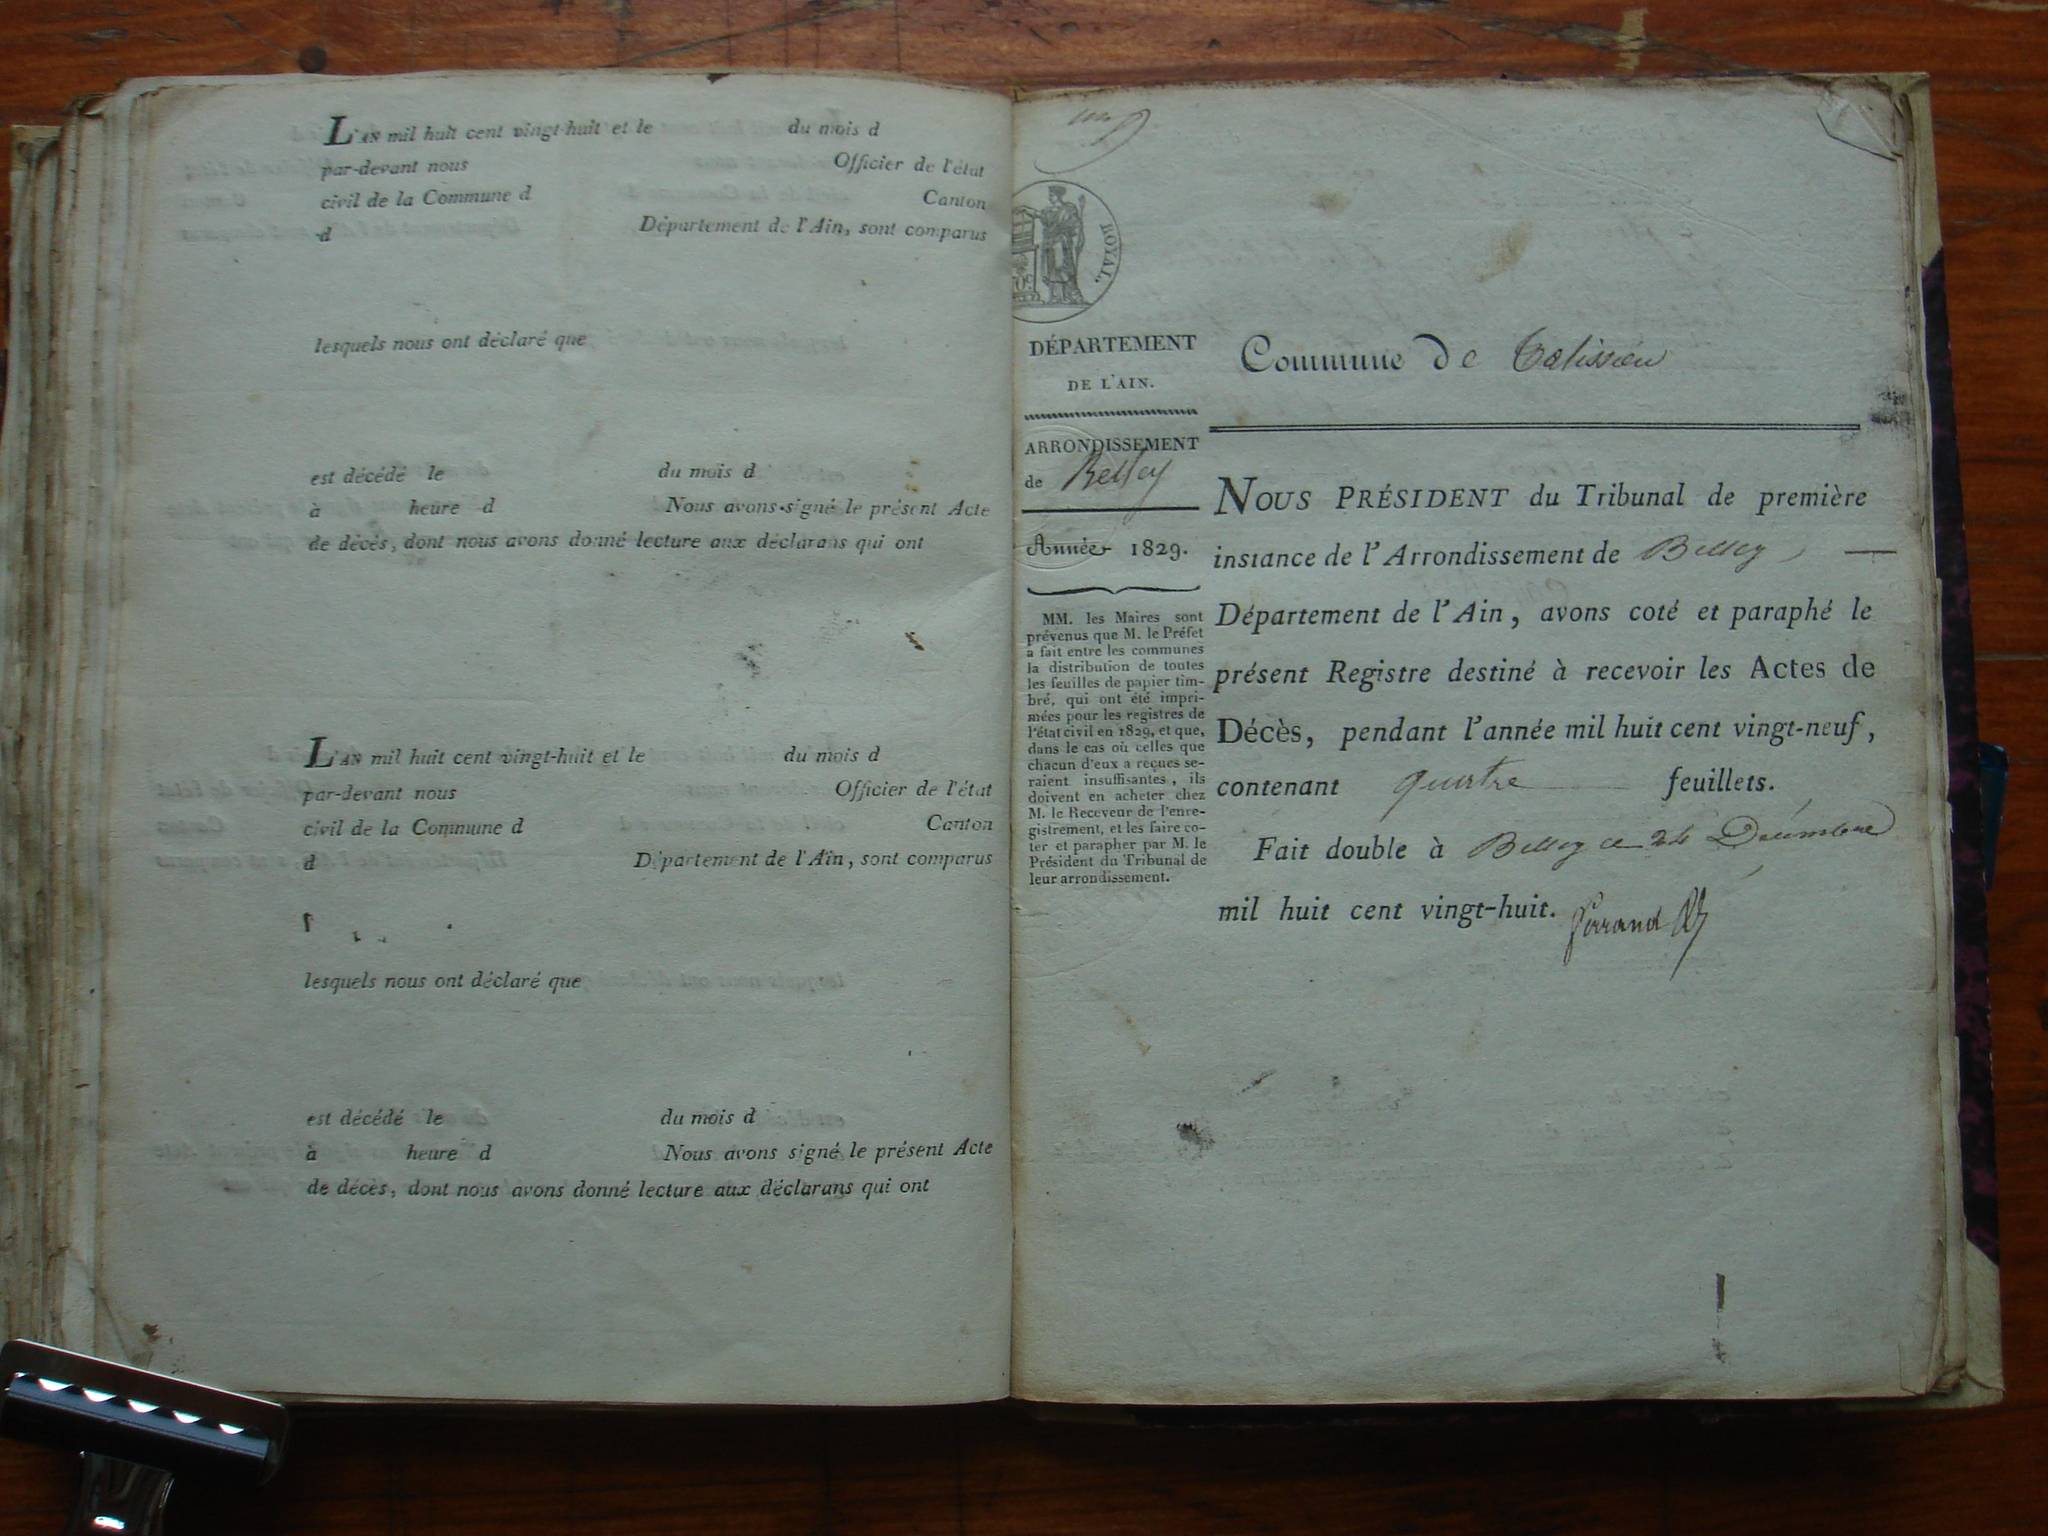 L'AN mil huit cent vingt-huit et le du mois d
par-devant nous Officier de l'état
civil de la Commune d Canton
d Département de l'Ain, sont comparus
lesquels nous ont déclaré que
est décédé le du mois d
à heure d Nous avons signé le présent Acte
de décès, dont nous avons donné lecture aux déclarans qui ont
L'AN mil huit cent vingt-huit et le du mois d
par-devant nous Officier de l'état
civil de la Commune d Canton
d Département de l'Ain, sont comparus
lesquels nous ont déclaré que
est décédé le du mois d
à heure d Nous avons signé le présent Acte
de décès, dont nous avons donné lecture aux déclarans qui ont
ROYAL.
DÉPARTEMENT
DE L'AIN.
ARRONDISSEMENT
de Belley
Année 1829.
MM. les Maires sont
prévenus que M. le Préfet
a fait entre les communes
la distribution de toutes
les feuilles de papier tim-
bré, qui ont été impri-
mées pour les registres de
l'état civil en 1829, et que,
dans le cas où celles que
chacun d'eux a reçues se-
raient insuffisantes, ils
doivent en acheter chez
M. le Receveur de l'enre-
gistrement, et les faire co-
ter et parapher par M. le
Président du Tribunal de
leur arrondissement.
Commune de Talissieu
NOUS PRÉSIDENT du Tribunal de première
instance de l'Arrondissement de Belley
Département de l'Ain, avons coté et paraphé le
présent Registre destiné à recevoir les Actes de
Décès, pendant l'année mil huit cent vingt-neuf,
contenant quatre feuillets.
Fait double à Belley ce 24 Décembre
mil huit cent vingt-huit.